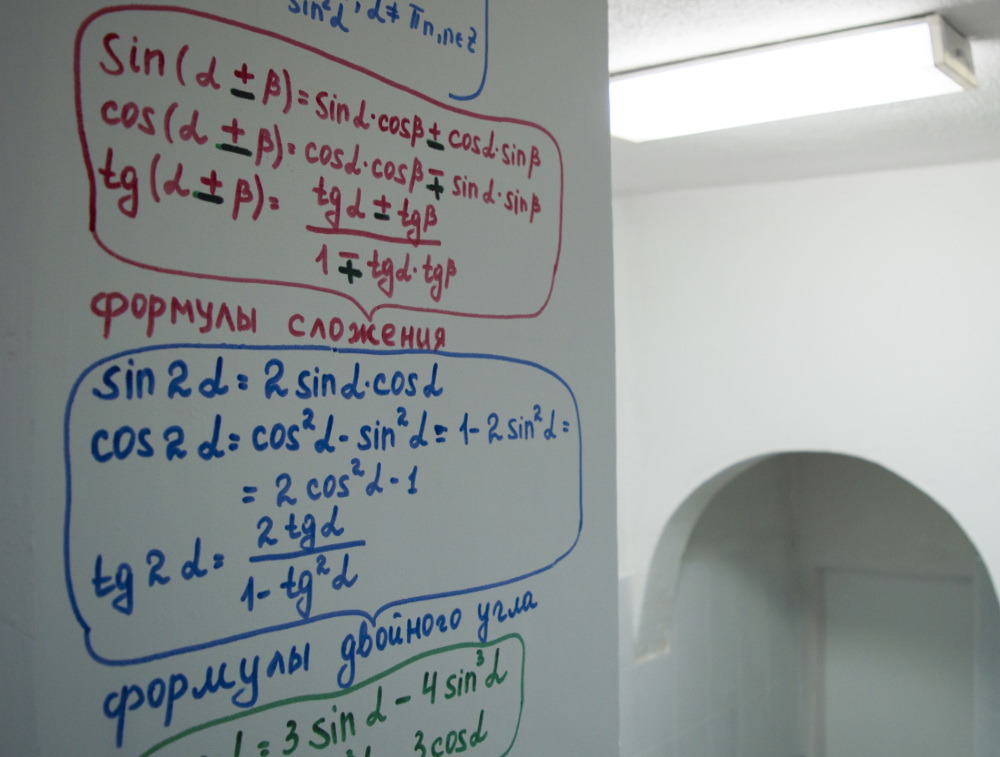 sin²α, α ≠ πn, n∈Z
sin(α ± β) = sinα·cosβ ± cosα·sinβ
cos(α ± β) = cosα·cosβ ∓ sinα·sinβ
tg(α ± β) = (tgα ± tgβ) / (1 ∓ tgα·tgβ)
формулы сложения
sin 2α = 2 sinα·cosα
cos 2α = cos²α - sin²α = 1 - 2 sin²α =
= 2 cos²α - 1
tg 2α = 2 tgα / (1 - tg²α)
формулы двойного угла
α = 3 sin α - 4 sin³α
3cosα